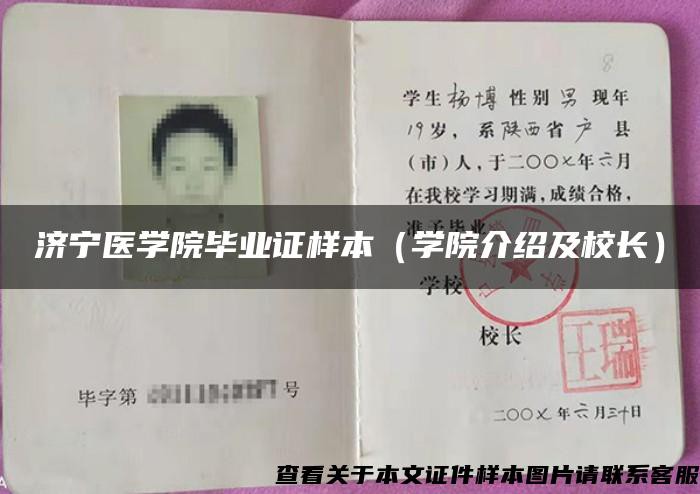 8
学生杨博性别男现年
19岁，系陕西省户县
(市)人，于二〇〇七年六月
在我校学习期满，成绩合格，
准予毕业
济宁医学院毕业证样本（学院介绍及校长）
学校
校长
毕字第 号
二〇〇七年六月三十日
查看关于本文证件样本图片请联系客服